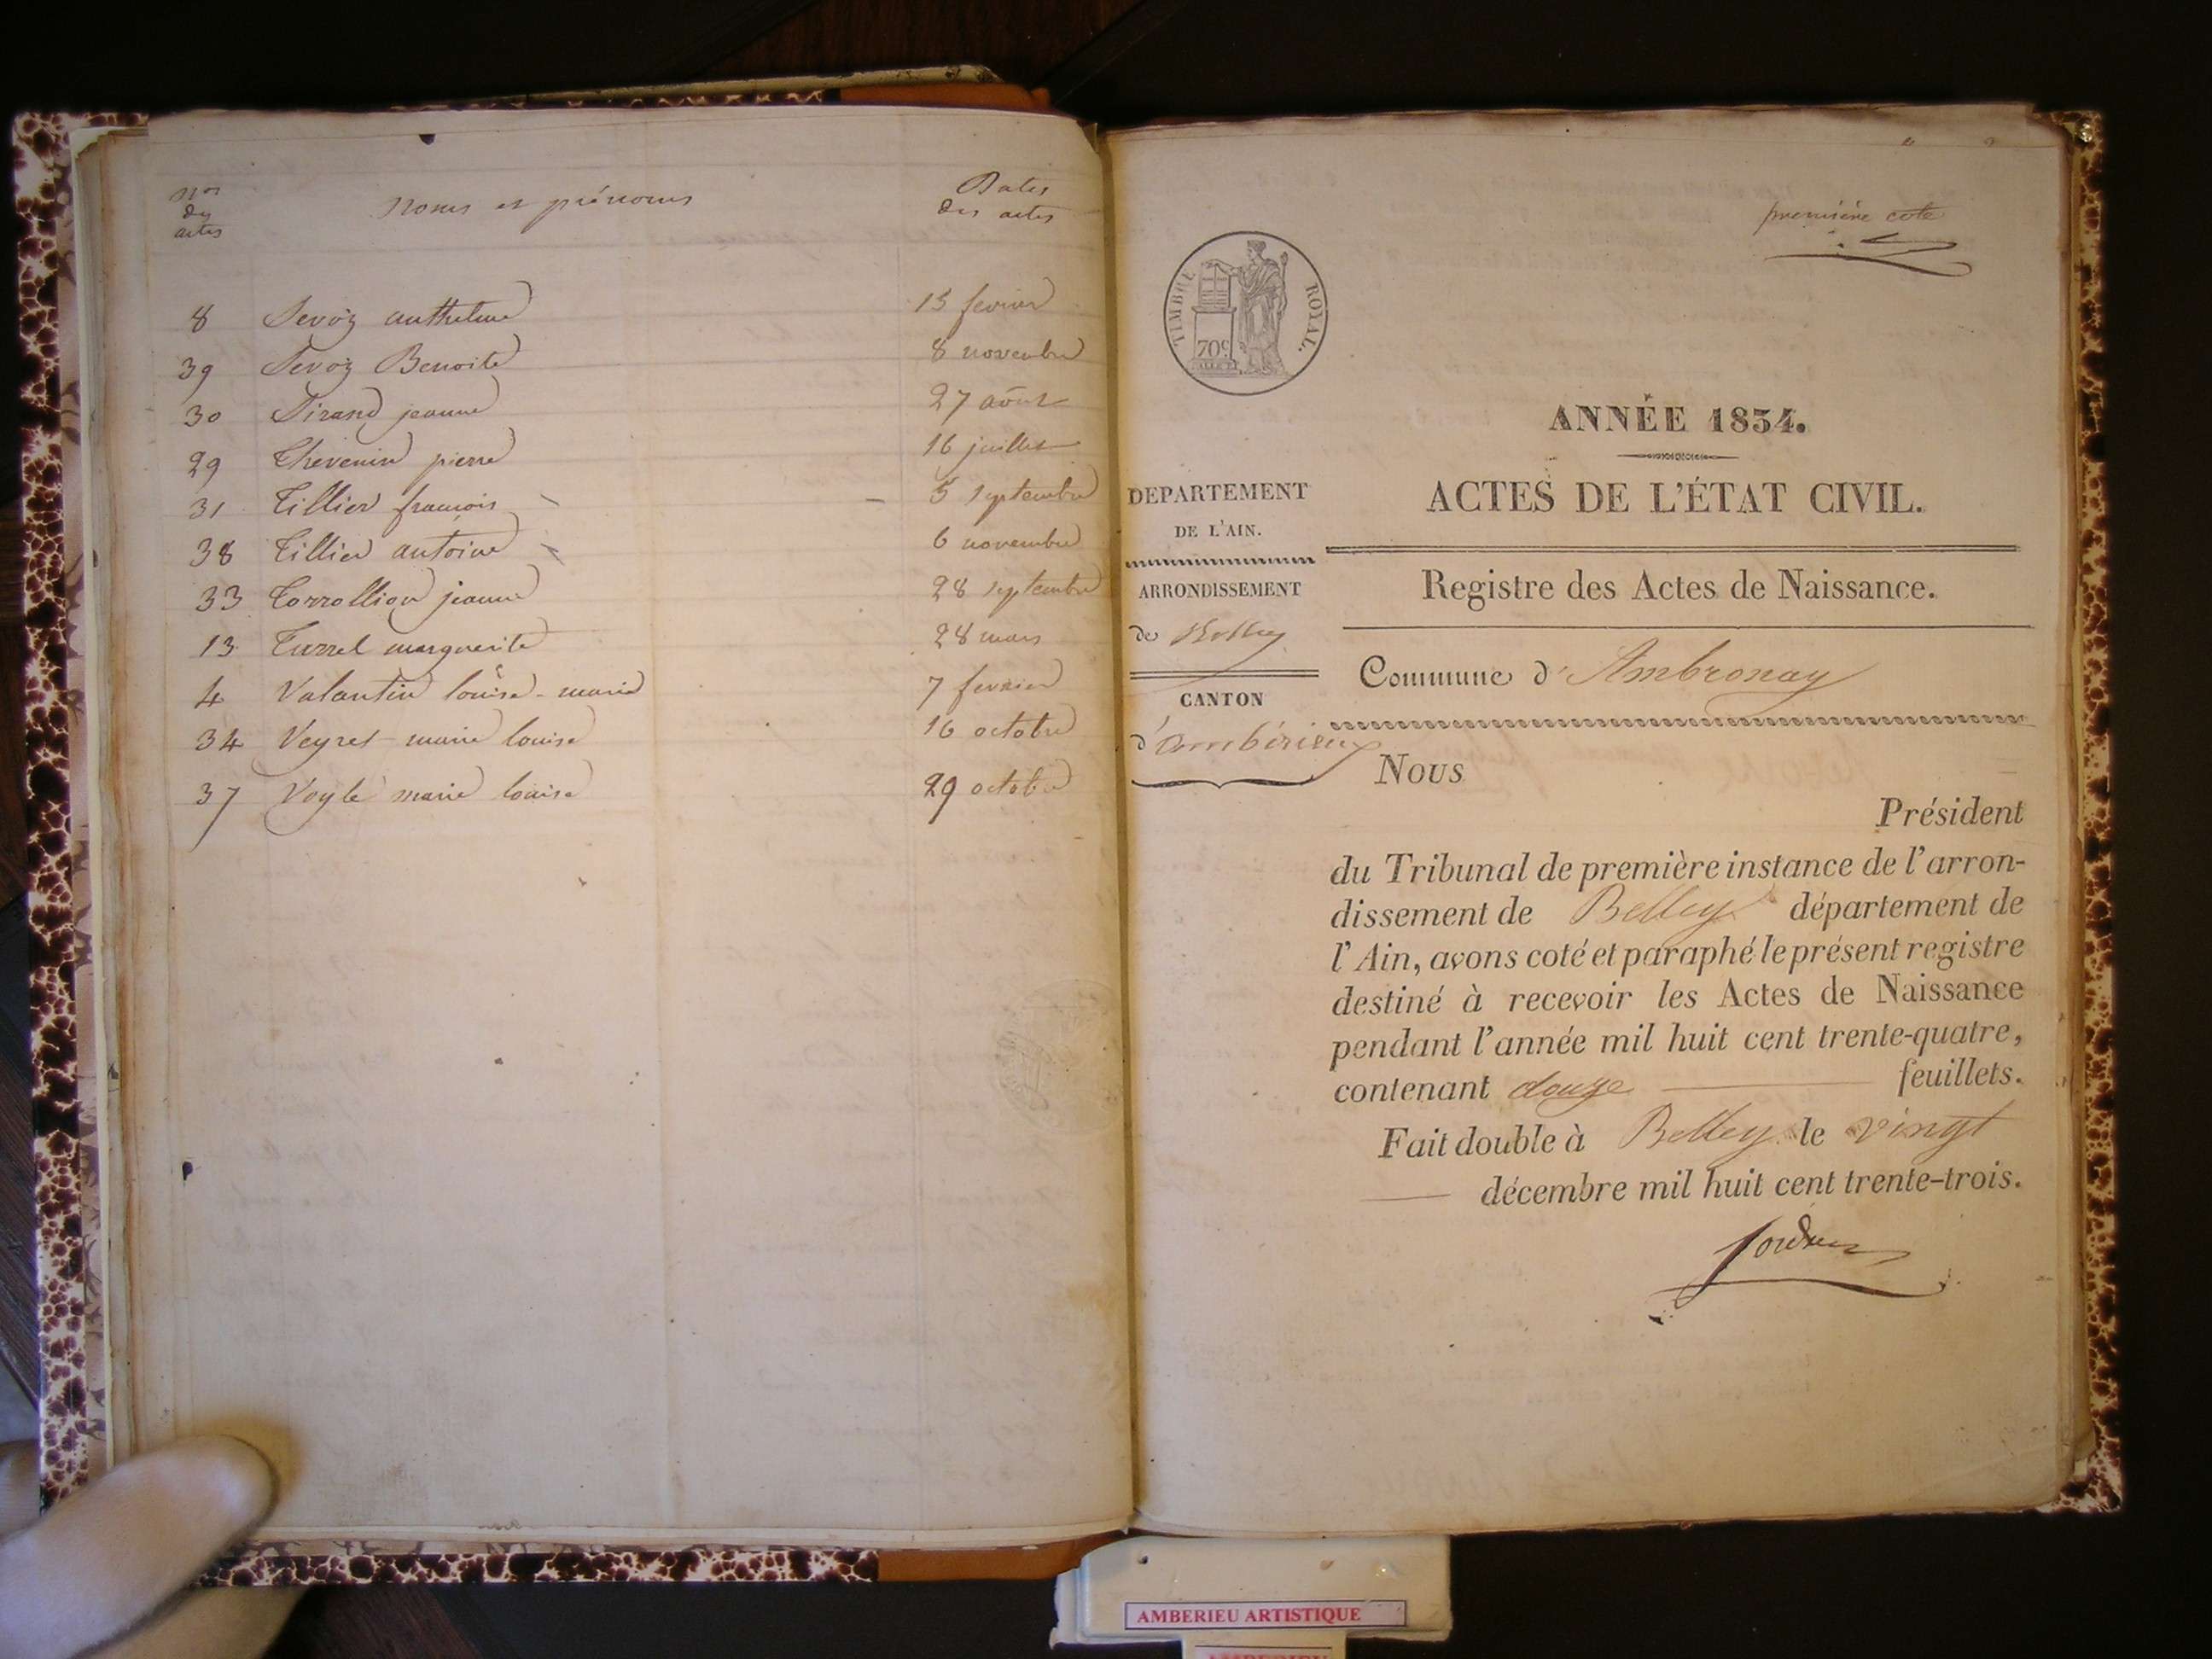 Nos des actes
Noms et prénoms
Dates des actes
8 Sevoz anthelme 15 fevrier
39 Sevoz Benoite 8 novembre
30 Sirand jeanne 27 août
29 Thevenin pierre 16 juillet
31 Tillier francois 5 septembre
38 Tillier antoine 6 novembre
33 Torrollion jeanne 28 septembre
13 Turrel marguerite 28 mars
4 Valantin louise-marie 7 fevrier
34 Veyret marie louise 16 octobre
37 Voyle marie louise 29 octobre
première cote
TIMBRE ROYAL.
70c
ANNÉE 1834.
ACTES DE L'ÉTAT CIVIL.
Registre des Actes de Naissance.
DEPARTEMENT
DE L'AIN.
ARRONDISSEMENT
de Belley
CANTON
d'ambérieux
Commune d'Ambronay
Nous
Président
du Tribunal de première instance de l'arron-
dissement de Belley département de
l'Ain, avons coté et paraphé le présent registre
destiné à recevoir les Actes de Naissance
pendant l'année mil huit cent trente-quatre,
contenant douze feuillets.
Fait double à Belley le vingt
décembre mil huit cent trente-trois.
AMBERIEU ARTISTIQUE